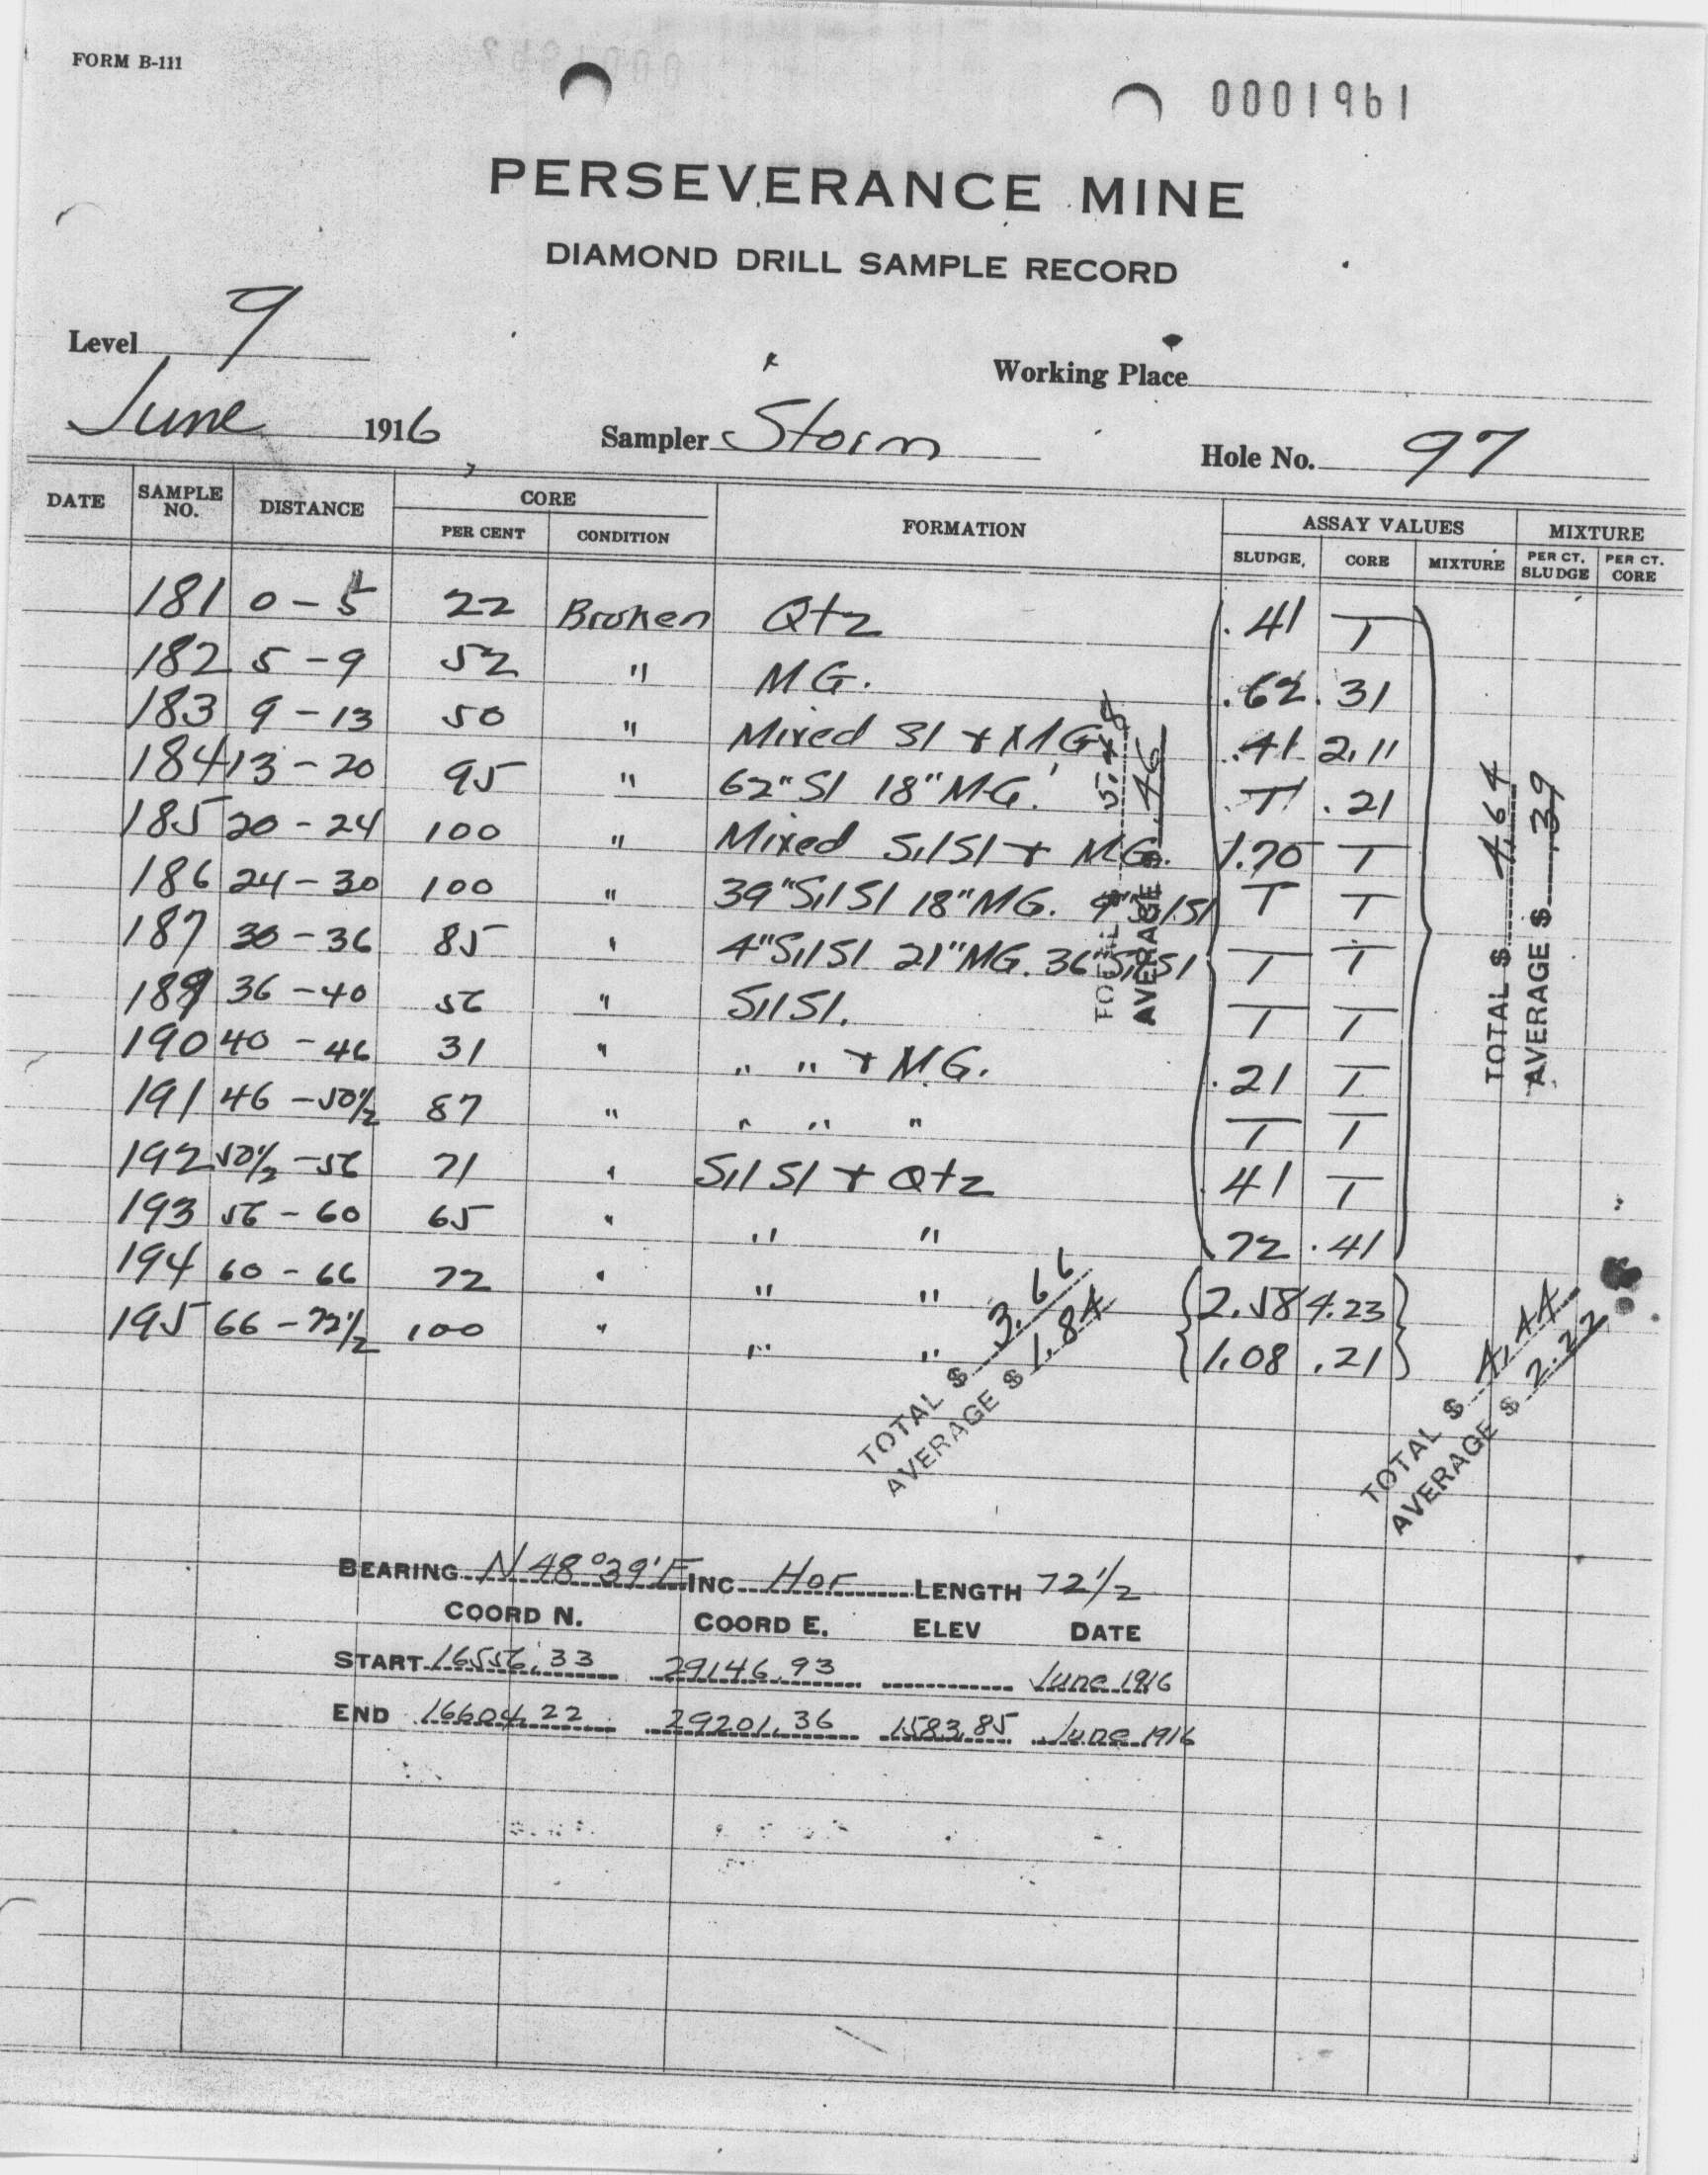 FORM B-111
0001961
PERSEVERANCE MINE
DIAMOND DRILL SAMPLE RECORD
Level 9
Working Place
June 1916, Sampler Storm Hole No. 97
DATE SAMPLE NO. DISTANCE CORE FORMATION ASSAY VALUES MIXTURE
PER CENT CONDITION SLUDGE, CORE MIXTURE PER CT. SLUDGE PER CT. CORE
181 0 - 5 22 Broken Qtz .41 T
182 5 - 9 52 " MG. .62 .31
183 9 - 13 50 " Mixed Sl + MG .41 2.11
184 13 - 20 95 " 62" Sl 18" MG. T .21
185 20 - 24 100 " Mixed SilSl + MG. 1.70 T
186 24 - 30 100 " 39" SilSl 18" MG. 9" SilSl T T
187 30 - 36 85 " 4" SilSl 21" MG. 36" SilSl T T
189 36 - 40 56 " SilSl. T T
190 40 - 46 31 " " " + MG. .21 T
191 46 - 50½ 87 " " " " T T
192 50½ - 56 71 " SilSl + Qtz .41 T
193 56 - 60 65 " " " .72 .41
194 60 - 66 72 " " " 2.58 4.23
195 66 - 72½ 100 " " " 1.08 .21
TOTAL $ 5.48
AVERAGE $ .46
TOTAL $ 4.64
AVERAGE $ .39
TOTAL $ 3.66
AVERAGE $ 1.84
TOTAL $ 4.44
AVERAGE $ 2.22
BEARING N 48° 39' E INC Hor LENGTH 72½
COORD N. COORD E. ELEV DATE
START 16556.33 29146.93 June 1916
END 16604.22 29201.36 1583.85 June 1916